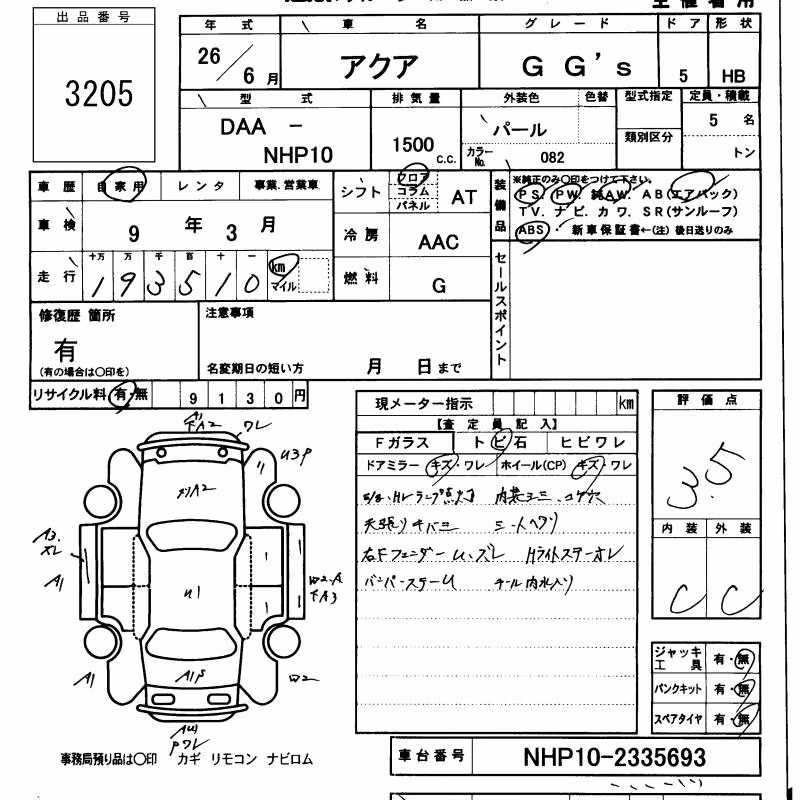 出品番号
3205
年式 車名 グレード ドア 形状
26/6月 アクア G G's 5 HB
型式 排気量 外装色 色替 型式指定 定員・積載
DAA - NHP10 1500 c.c. パール 類別区分 5 名
カラーNo. 082 トン
車歴 自家用 レンタ 事業.営業車 シフト フロア コラム パネル AT
装備品 ※純正のみ〇印をつけて下さい。
PS. PW. 純AW. AB(エアバック)
TV. ナビ. カワ. SR(サンルーフ)
ABS ・新車保証書←(注)後日送りのみ
車検 9年 3月 冷房 AAC
走行 十万 万 千 百 十 一
193510 km マイル 燃料 G
セールスポイント
修復歴 箇所 注意事項
有
(有の場合は〇印を) 名変期日の短い方 月 日まで
リサイクル料 有・無 9130円
現メーター指示 km
評価点
3.5
【査定員記入】
Fガラス トビ石 ヒビワレ
ドアミラー キズ・ワレ ホイール(CP) キズ・ワレ
HLランプ点灯 内装ヨゴミ コゲ穴
天張り キバミ シートヘタリ
右Fフェンダー U、ズレ Hライトステーオレ
バンパーステーU チール内水入り
内装 外装
C C
ワレ
U3P
A2
U1
A1
A1
W2
ジャッキ工具 有・無
パンクキット 有・無
スペアタイヤ 有・無
事務局預り品は〇印 カギ リモコン ナビロム
車台番号 NHP10-2335693